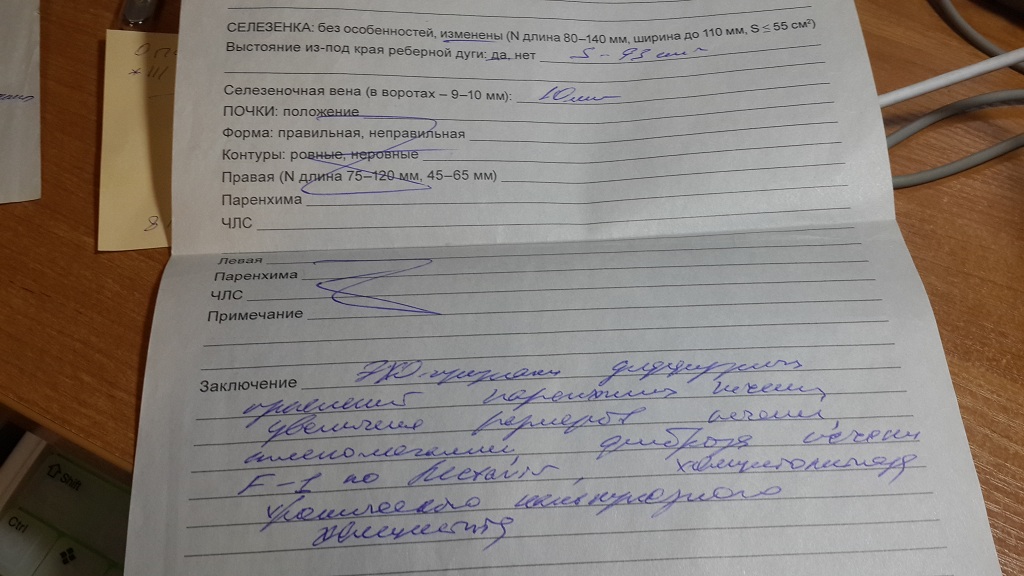 СЕЛЕЗЕНКА: без особенностей, изменены (N длина 80–140 мм, ширина до 110 мм, S ≤ 55 см²)
Выстояние из-под края реберной дуги: да, нет S - 93 см²
Селезеночная вена (в воротах – 9–10 мм): 10 мм
ПОЧКИ: положение
Форма: правильная, неправильная
Контуры: ровные, неровные
Правая (N длина 75–120 мм, 45–65 мм)
Паренхима
ЧЛС
Левая
Паренхима
ЧЛС
Примечание
Заключение ЭХО-признаки диффузных
паренхимы печени,
увеличения размеров печени
спленомегалии, фиброза печени
F-1 по
хронического калькулезного
холецистита
Shift
Ctrl